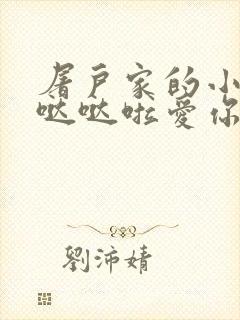 屠户家的小
哒哒啦爱你
劉沛婧